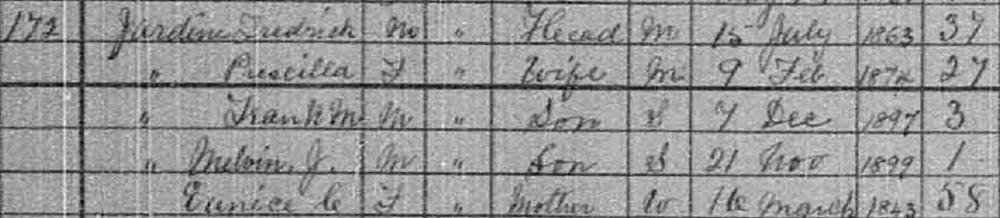 172 Jardine Fredrick M " Head M 15 July 1863 37
" Priscilla F " Wife M 9 Feb 1874 27
" Frank M M " Son S 7 Dec 1897 3
" Melvin. J. M " Son S 21 Nov 1899 1
Eunice C F " Mother W 16 March 1843 58